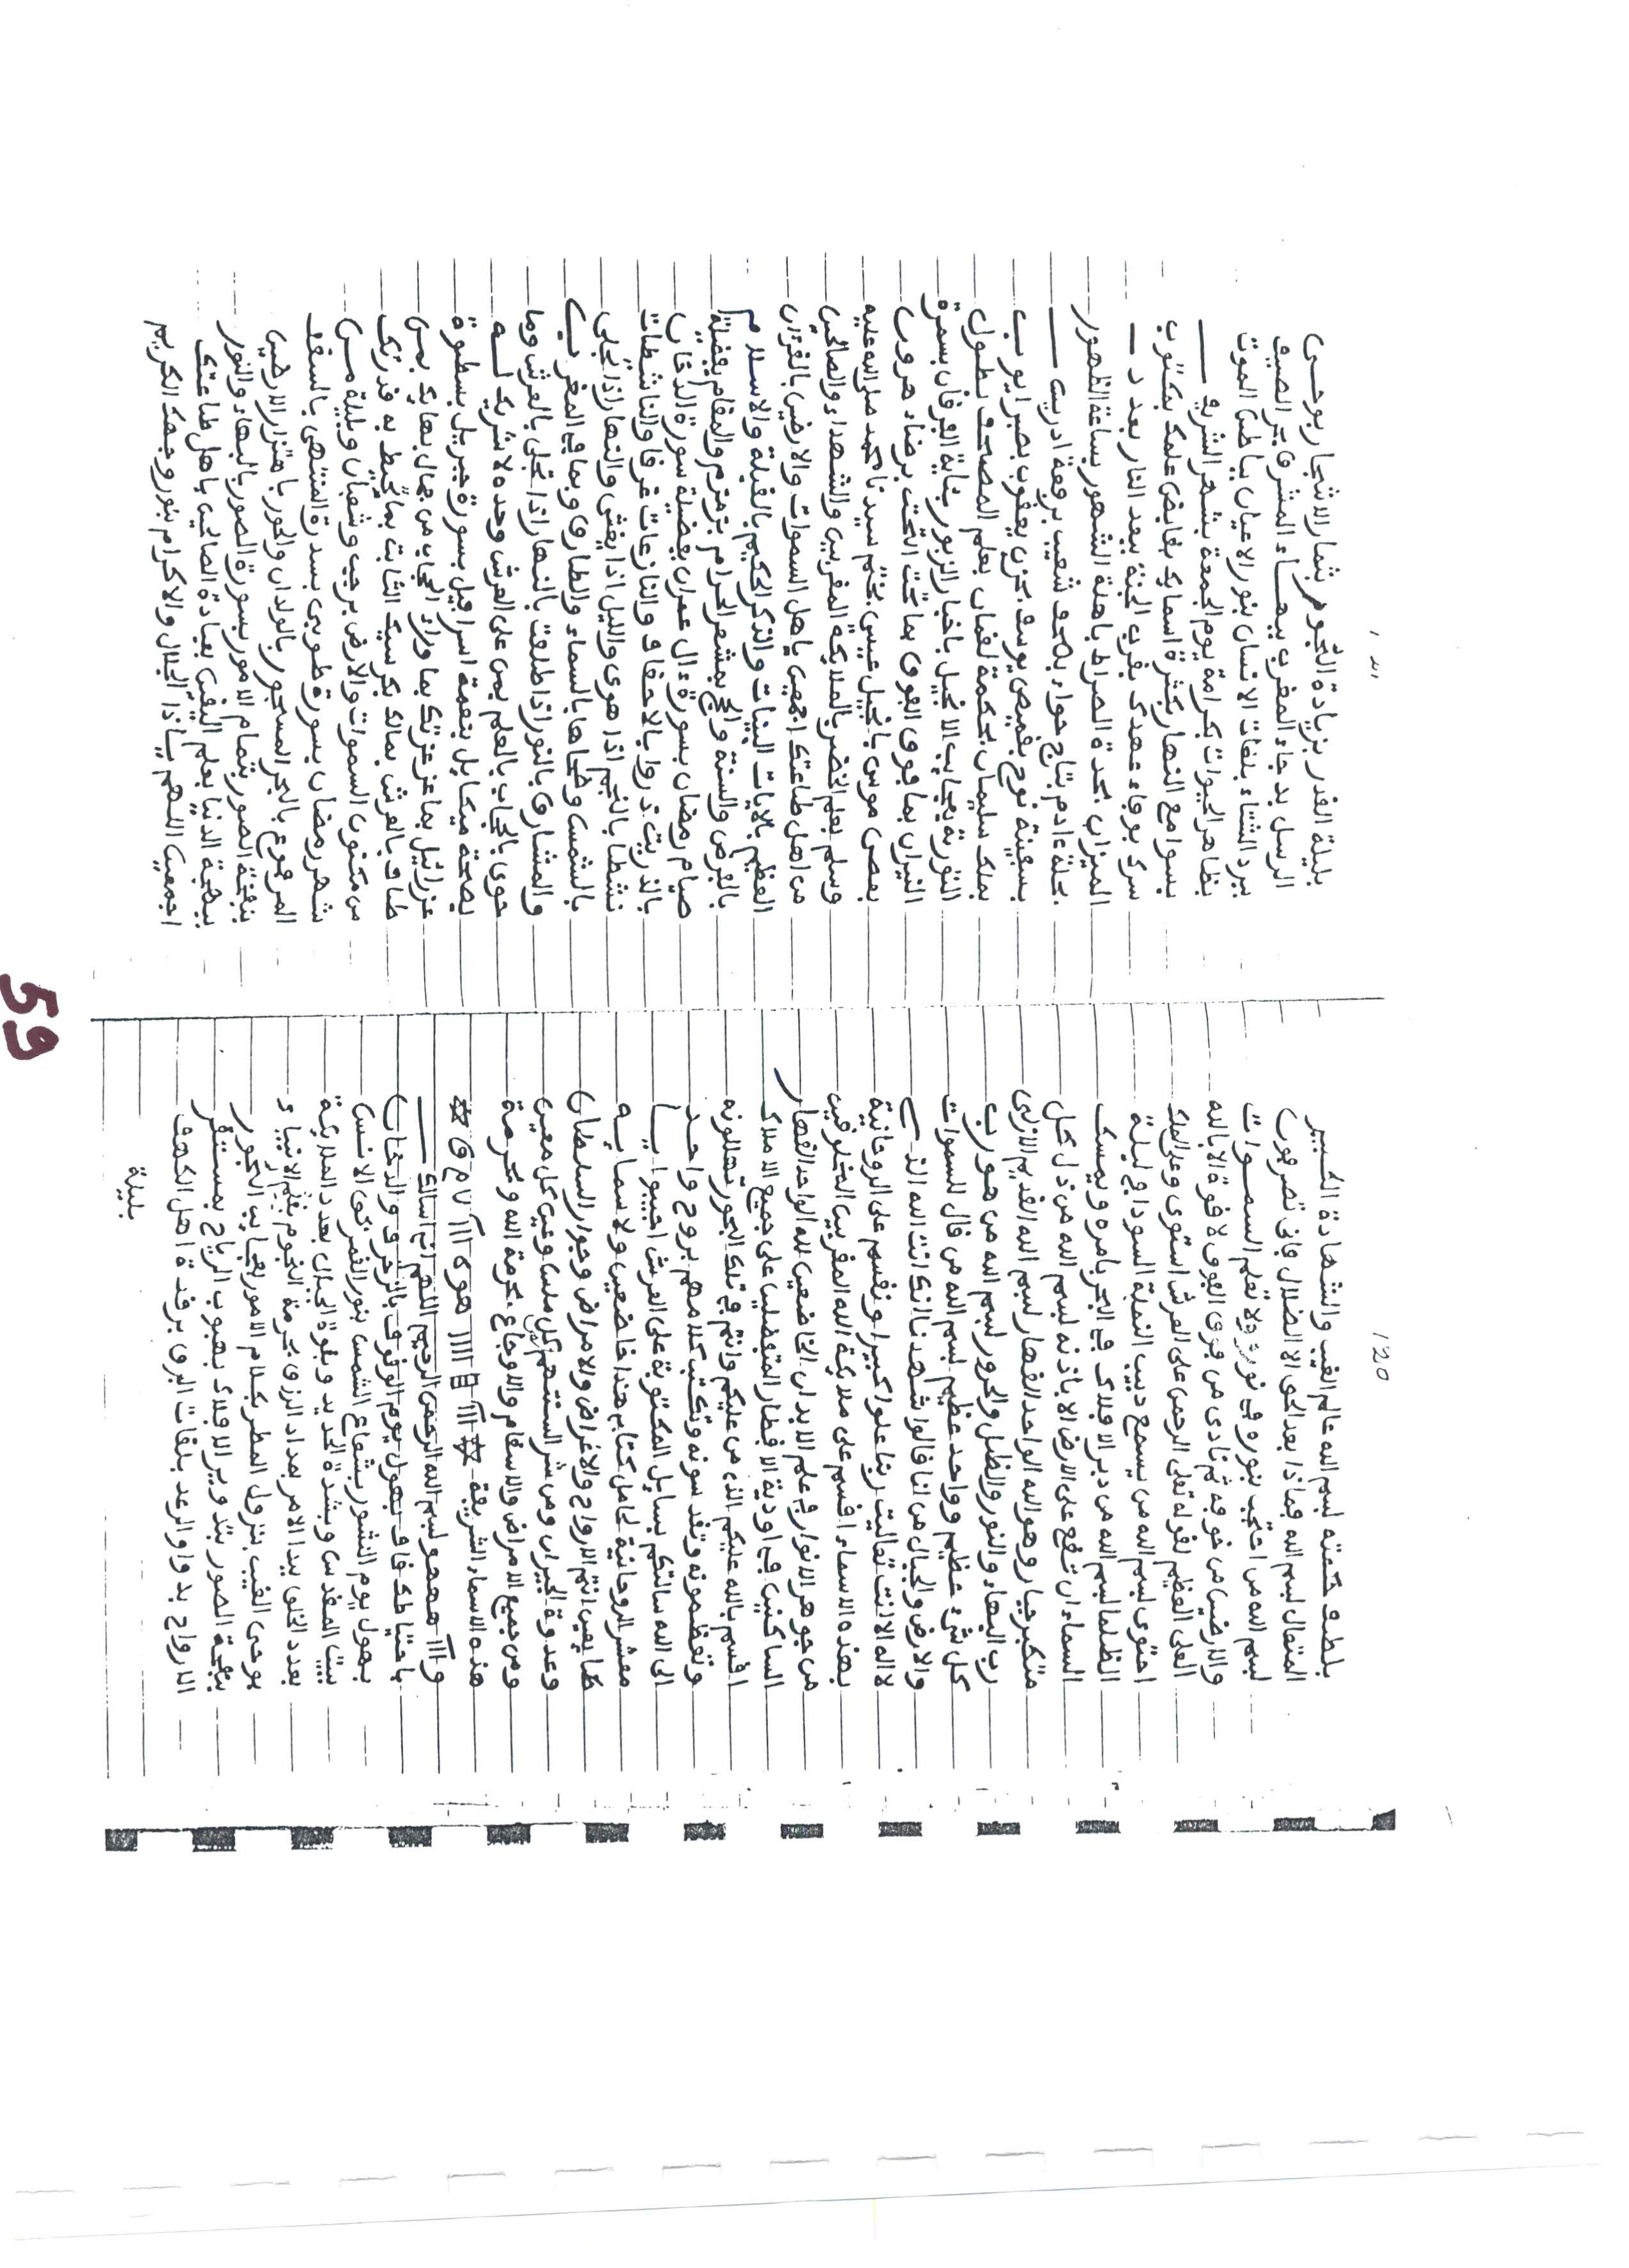 120
بلطف حكمته لبسم الله عالم الغيب والشهادة الكبير
المتعال لبسم الله فماذا بعد الحق الا الضلال فانى تصرفون
لبسم الله من احتجب بنوره في نور ولا تعلم السموات
والارضيا من خوفه ثم نادى من فزى القوى لا قوة الا بالله
العلى العظيم لقوله تعلى الرحمن على العرش استوى وعلى الملك
احتوى لبسم الله من يسمع دبيب النملة السودا في ليلة
الظلما لبسم الله من دبر الافلاك في البحر بامره ويمسك
السماء ان تقع على الارض الا باذنه لبسم الله من ذل كل
متكبر جبار وهو الله الواحد القهار لبسم الله القديم الازلى
رب البهاء والنور والظل والحرور لبسم الله من هو رب
كل شيء عظيم وواحد عظيم لبسم الله من قال للسموات
والارض والجبال من انا فالوا شهدنا انك انت الله الذي
لا اله الا انت تعاليت ربنا علوا كبيرا ونفسم على الروحانية
بهذه الاسماء افسم على ملايكة الله المقربين المخلوقين
من جوهر الانوار في علم الابدان الخاضعين لله الواحد القهار
الساكنين في اودية الافطار المتفضلين على جميع الاملاك
افسم بالله عليكم الذي من عليكم وانتم في تلك البحور تهللونه
وتعظمونه وتقدسونه وتكتب كلامهم بروح واحد
الى الله سالتكم بسايل المكتوبة على العرش اجيبوا يا
معشر الروحانية لحامل كتابي هذا خاضعين ولاسمايه
طايعين انتم الارواح والاغراض والامراض وجوار السلطان
وعدوة الجيران ومن شر السنتهم كل ملس وعين كل معين
ومن جميع الامراض والاسقام والاوجاع بحرمة الله وبحرمة
هذه الاسماء الشريفة
لبسم الله الرحمن الرحيم اللهم انى اسالك
باحتياطك قاف بهول يوم الوقوف بالزخرف والدخان
بهول يوم النشور بشعاع الشمس بنور القمر بحق الانس
بيت المقدس وبشدة الحديد وبقوة الجبال بعدد الملايكة
بعدد الخلق بيد الامر بمداد الرزق بحرمة النجوم بعلم الانبياء
بوحى الغيب بنزول المطر بكلام الامور بعجايب البحور
بنفخة الصور بتدوير الافلاك بهبوب الرياح بمستقر
الارواح بدوا والرعد بلفات البرق برقدة اهل الكهف
بليلة
121
بليلة القدر بزيادة النجوم بثمار الاشجار بوحى
الرسل بدجاء المغرب ببهاء المشرق بحر الصيف
ببرد الشتاء بلغات الانسان بنور الاعيان بباطن الموت
بظاهر الحيوات بكرامة يوم الجمعة بشهر الشريف
بسوامع النهار بكثرة اسمايك بغايض علمك بمكنون
سرك بوفاء عهدك بقرب الجنة ببعد النار بعدد
الميزان بحدة الصراط باهلة الشهور بساعة الظهور
بجلة ءادم بتاج حواء بصحف شعيب برفعة ادريس
بسفينة نوح بقميص يوسف بحزن يعقوب بصبر ايوب
بملك سليمان بحكمة لقمان بعلم المصحف بطول
التورية بعجايب الانجيل باخبار الزبور بئاية الفرقان بسمرة
النيران بما فوق الفوق بما تحت التحت برضاء هرون
بعصى موسى بانجيل عيسى بختم سيدنا محمد صلى الله عليه
وسلم بعلم الخضر بالملايكة المقربين والشهداء والصالحين
من اهل طاعتك اجمعين باهل السموات والارضين بالقرءان
العظيم بالايات البينات والذكر الحكيم بالقبلة والاسلام
بالفرض والسنة والحج بمشعر الحرام بزمزم والمقام بفضيلة
صيام رمضان بسورة ءال عمران بفضيلة سورة الدخان
بالذريت ذروا بالاحقاف والنازعات غرقا والناشطات
نشطا بالنجم اذا هوى واليل اذا يغشى والنهار اذا تجلى
بالشمس وضحاها بالسماء والطارق وبما في المغرب
والمشارق بالنور اذا طلعت بالنهار اذا تجلى بالعرش وما
حوى بالحجاب بالعلم بمن على العرش وحده لا شريك له
بصيحة ميكايل بنعمة اسرافيل بسورة جبريل بسطوة
عزرائيل بما عز عزتك بما وراء الحجاب من جمال بهايك بمن
طاف بالعرش بمالك بكرسيك الثابت بما تحيط به قدرتك
من مكنون السموات والارض برجب وشعبان وبليلة من
شهر رمضان بسورة طوبى بسدرة المنتهى بالسقف
المرفوع بالبحر المسجور بالولدان والحور باهتزاز الارضين
بنفخة الصور بتمام الامور بسورة الصور بالبهاء والنور
ببهجة الدنيا بعلم اليقين بعبادة الصالحين باهل طاعتك
اجمعين اللهم ياذا الجلال والاكرام بنور وجهك الكريم
59